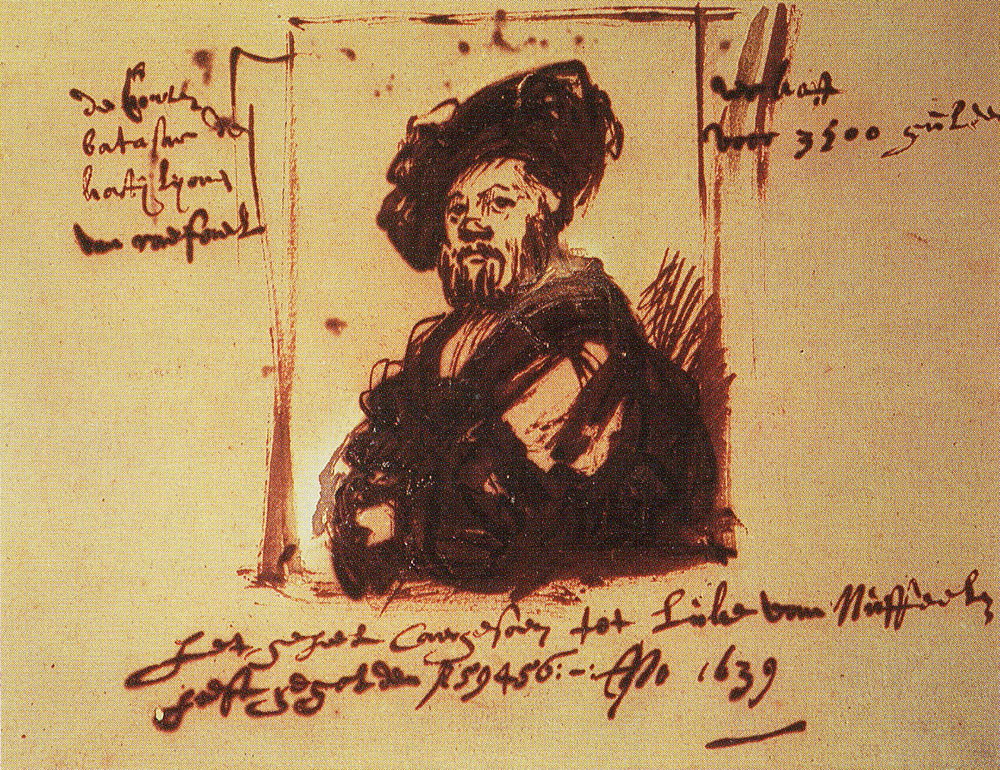 de Conte
batasar de
kastijlyone
van raefael
verkoft
voor 3500 gulden
het geheel caergesoen tot Luke van Nuffeelen
heeft gegolden f 59456:-: Ano 1639